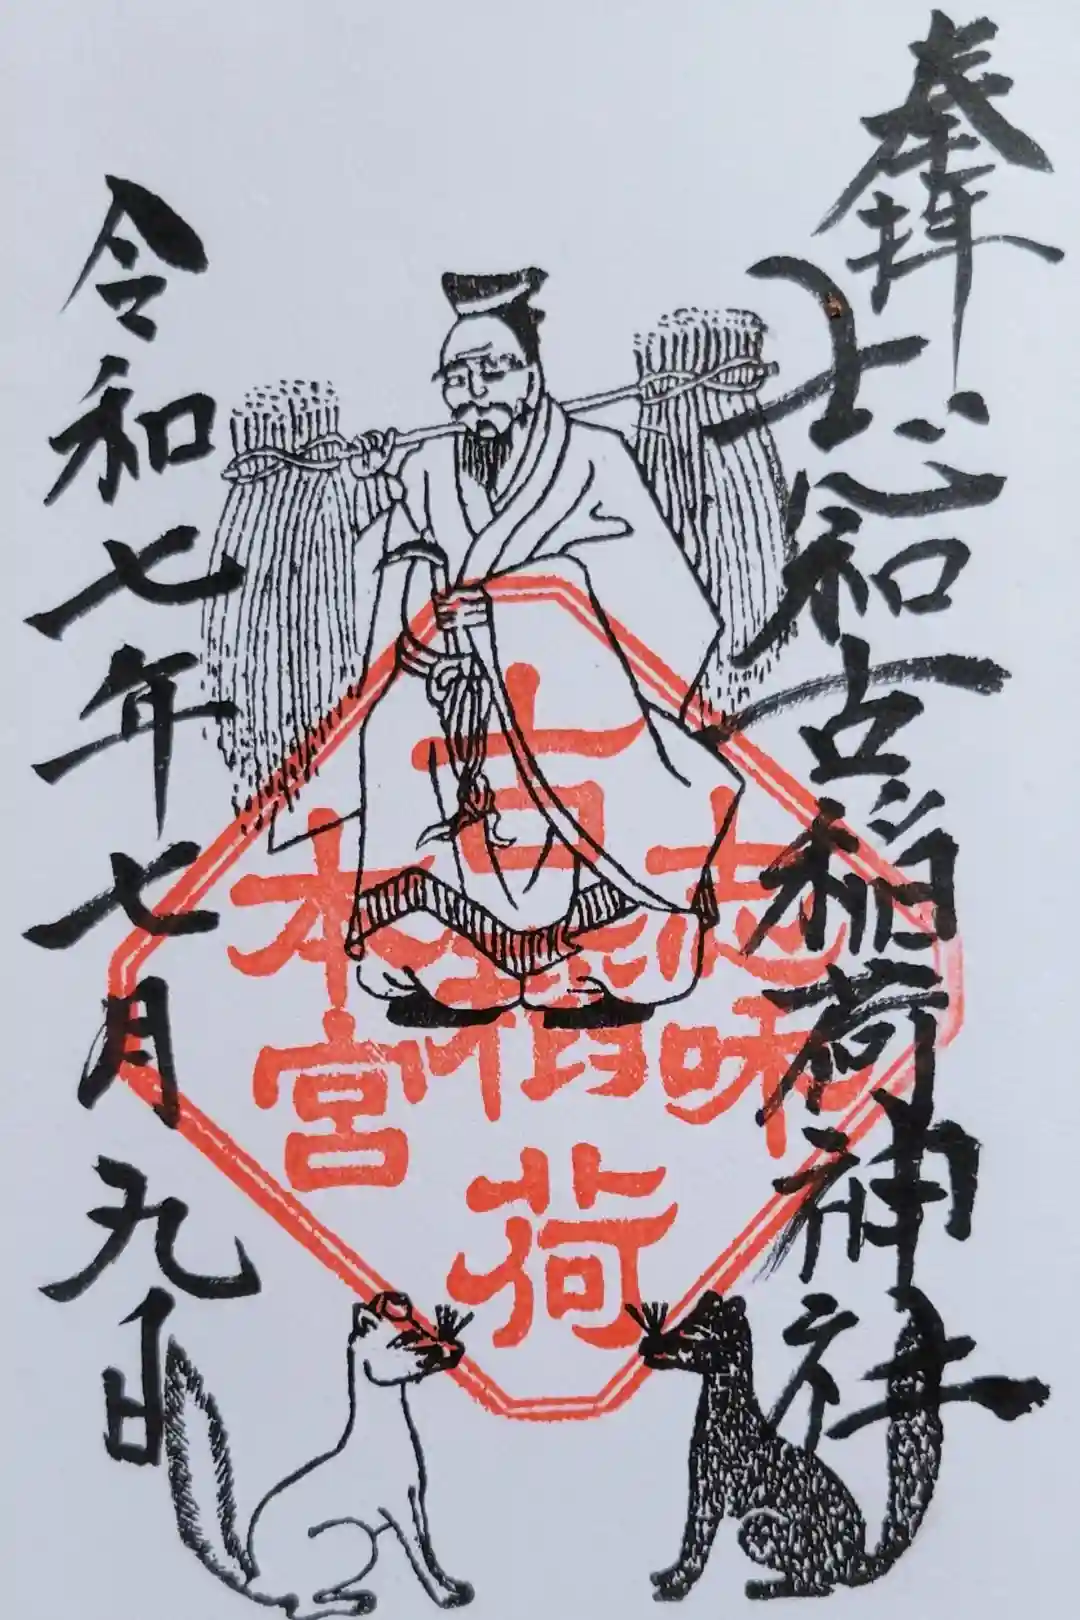 奉拝
志和古稲荷神社
志和
古稲荷
本宮
令和七年七月九日